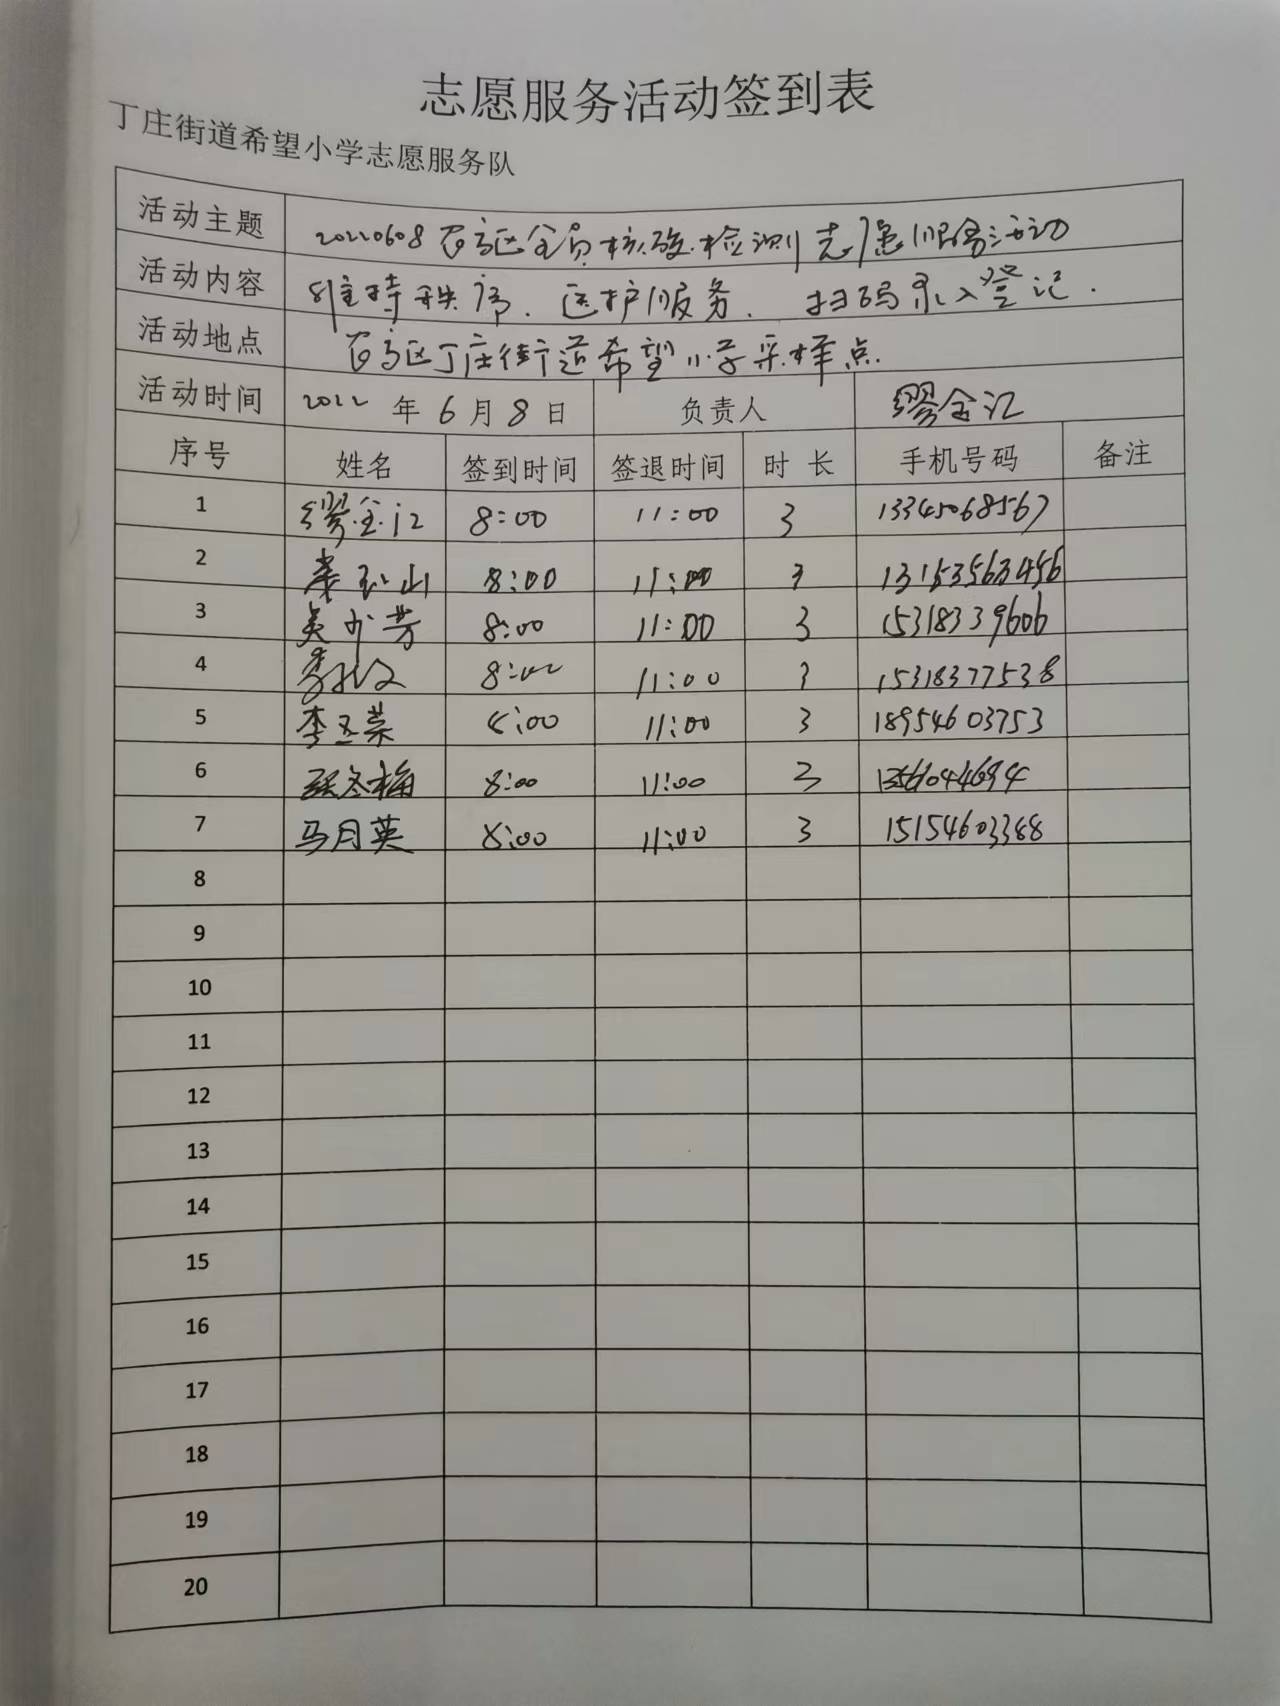 志愿服务活动签到表
丁庄街道希望小学志愿服务队
活动主题 20220608农高区全员核酸检测志愿服务活动
活动内容 维持秩序、医护服务、扫码录入登记.
活动地点 农高区丁庄街道希望小学采样点.
活动时间 2022年6月8日 负责人 缪金江
序号 姓名 签到时间 签退时间 时长 手机号码 备注
1 缪金江 8:00 11:00 3 13345068567
2 8:00 11:00 3 13153563456
3 8:00 11:00 3 15318339606
4 8:00 11:00 3 15318377538
5 李玉荣 8:00 11:00 3 18954603753
6 张冬梅 8:00 11:00 3
7 马月英 8:00 11:00 3 15154603388
8
9
10
11
12
13
14
15
16
17
18
19
20